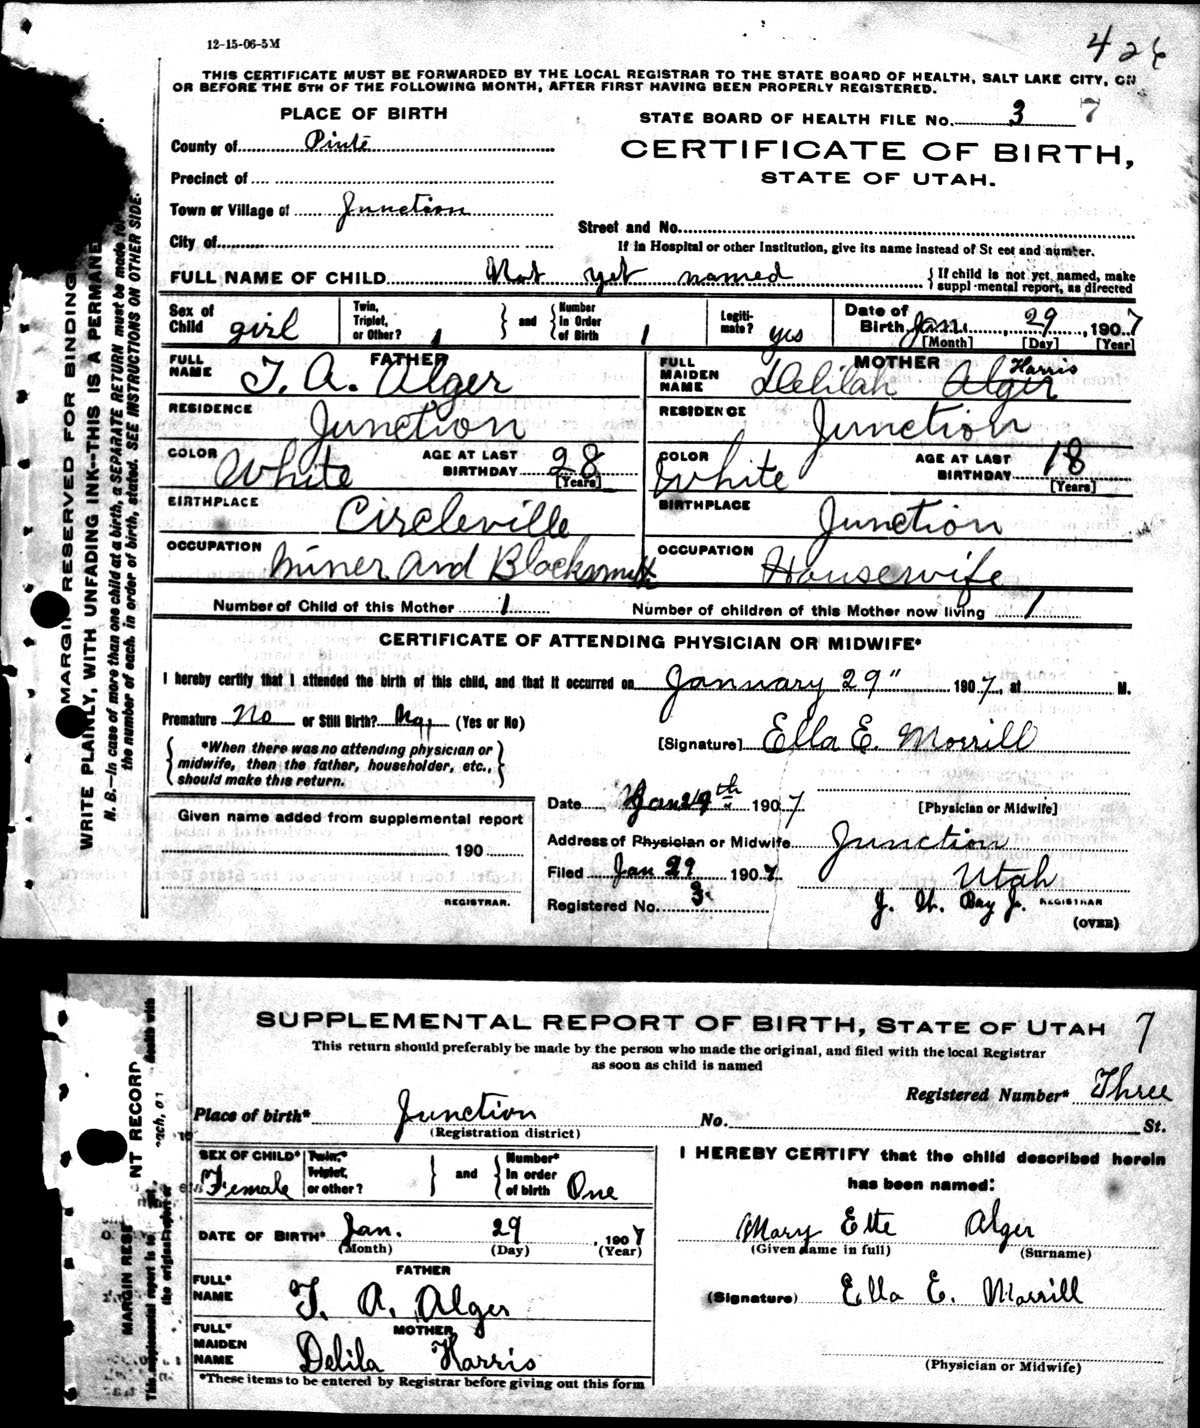 12-15-06-5M
426
THIS CERTIFICATE MUST BE FORWARDED BY THE LOCAL REGISTRAR TO THE STATE BOARD OF HEALTH, SALT LAKE CITY, ON
OR BEFORE THE 5TH OF THE FOLLOWING MONTH, AFTER FIRST HAVING BEEN PROPERLY REGISTERED.
PLACE OF BIRTH
STATE BOARD OF HEALTH FILE NO. 3 7
County of Piute
CERTIFICATE OF BIRTH,
STATE OF UTAH.
Precinct of
Town or Village of Junction
Street and No.
City of
If in Hospital or other Institution, give its name instead of Street and number.
FULL NAME OF CHILD Not yet named
{If child is not yet named, make
supplemental report, as directed
Sex of Child girl
Twin, Triplet, or Other? 1 } and { Number In Order of Birth 1
Legitimate? yes
Date of Birth Jan. 29, 1907
[Month] [Day] [Year]
FATHER
FULL NAME T. A. Alger
MOTHER
FULL MAIDEN NAME Delilah Alger Harris
RESIDENCE Junction
RESIDENCE Junction
COLOR White AGE AT LAST BIRTHDAY 28 [Years]
COLOR White AGE AT LAST BIRTHDAY 18 [Years]
BIRTHPLACE Circleville
BIRTHPLACE Junction
OCCUPATION Miner and Blacksmith
OCCUPATION Housewife
Number of Child of this Mother 1 Number of children of this Mother now living 1
CERTIFICATE OF ATTENDING PHYSICIAN OR MIDWIFE*
I hereby certify that I attended the birth of this child, and that it occurred on January 29" 1907, at M.
Premature No or Still Birth? No (Yes or No)
[Signature] Ella E. Morrill
{*When there was no attending physician or
midwife, then the father, householder, etc.,
should make this return.}
Date Jan 29th 1907
[Physician or Midwife]
Given name added from supplemental report
190
REGISTRAR.
Address of Physician or Midwife Junction
Utah
Filed Jan 29 1907
Registered No. 3
REGISTRAR
(OVER)
MARGIN RESERVED FOR BINDING
WRITE PLAINLY, WITH UNFADING INK--THIS IS A PERMANE
N. B.—In case of more than one child at a birth, a SEPARATE RETURN must be made fo
the number of each, in order of birth, stated. SEE INSTRUCTIONS ON OTHER SIDE.
SUPPLEMENTAL REPORT OF BIRTH, STATE OF UTAH 7
This return should preferably be made by the person who made the original, and filed with the local Registrar
as soon as child is named
Registered Number* Three
Place of birth* Junction No. St.
(Registration district)
SEX OF CHILD* Female
Twin,* Triplet, or other? } and { Number* In order of birth One
I HEREBY CERTIFY that the child described herein
has been named:
DATE OF BIRTH* Jan. 29, 1907
(Month) (Day) (Year)
Mary Ette Alger
(Given name in full) (Surname)
FATHER
FULL* NAME T. A. Alger
(Signature) Ella E. Morrill
MOTHER
FULL* MAIDEN NAME Delila Harris
(Physician or Midwife)
*These items to be entered by Registrar before giving out this form
NT RECORD
MARGIN RESE
the original